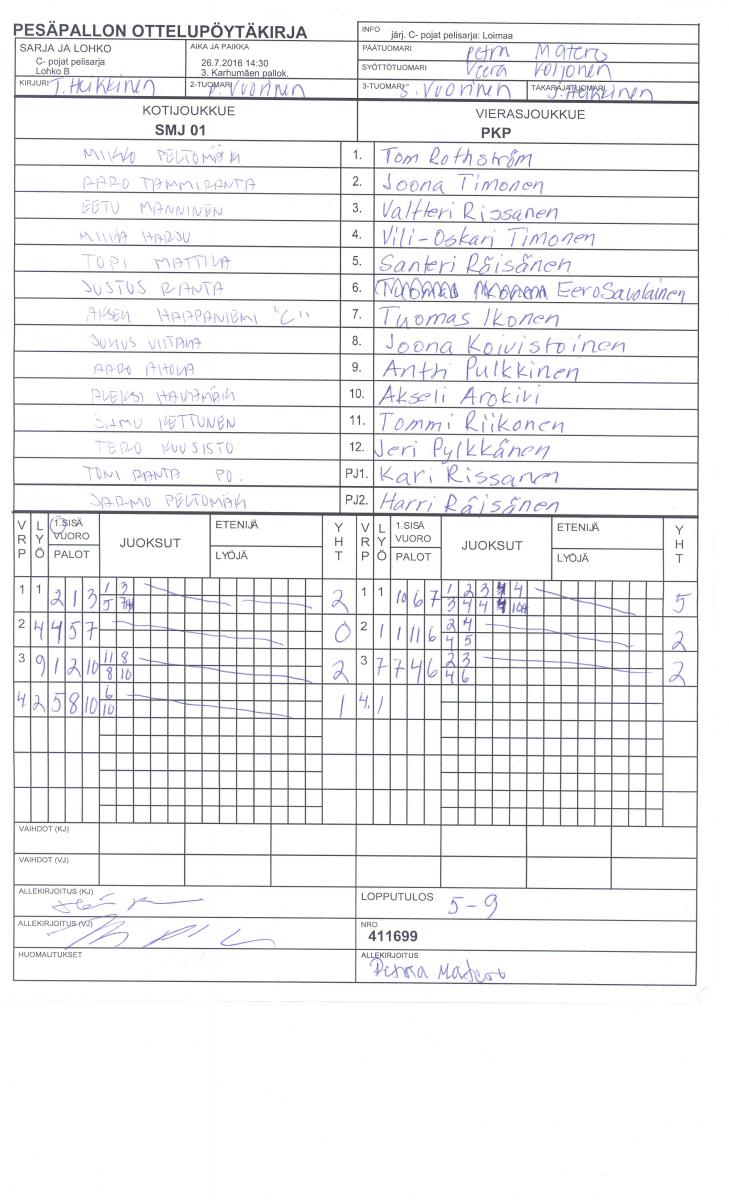 PESÄPALLON OTTELUPÖYTÄKIRJA
INFO järj. C- pojat pelisarja: Loimaa
SARJA JA LOHKO
C- pojat pelisarja
Lohko B
AIKA JA PAIKKA
26.7.2016 14:30
3. Karhumäen pallok.
PÄÄTUOMARI Petra Matero
SYÖTTÖTUOMARI Veera
KIRJURI T. Heikkinen
2-TUOMARI Vuorinen
3-TUOMARI S. Vuorinen
TAKARAJATUOMARI J. Heikkinen
KOTIJOUKKUE
SMJ 01
VIERASJOUKKUE
PKP
MIKKO PELTOMÄKI 1. Tom Rothström
AARO TAMMIRANTA 2. Joona Timonen
EETU MANNINEN 3. Valtteri Rissanen
MIIKA HARJU 4. Vili-Oskari Timonen
TOPI MATTILA 5. Santeri Räisänen
JUSTUS RANTA 6. Eero Savolainen
HAAPANIEMI "C" 7. Tuomas Ikonen
VIITALA 8. Joona Koivistoinen
AARO 9. Antti Pulkkinen
ALEKSI 10. Akseli Arokivi
SAMU KETTUNEN 11. Tommi Riikonen
TERO KUUSISTO 12. Jeri Pylkkänen
TONI RANTA PO. PJ1. Kari Rissanen
JARMO PELTOMÄKI PJ2. Harri Räisänen
VRP LYÖ 1.SISÄ VUORO PALOT JUOKSUT ETENIJÄ LYÖJÄ YHT VRP LYÖ 1.SISÄ VUORO PALOT JUOKSUT ETENIJÄ LYÖJÄ YHT
1 1 2 1 3 1 3 2 1 1 10 6 7 1 2 3 4 5
5 3 4 4
2 4 4 5 7 0 2 1 1 11 6 2 4 2
4 5
3 9 1 2 10 11 8 2 3 7 7 4 6 2 3 2
8 10 4 6
4. 2 5 8 10 6 1 4. 1
10
VAIHDOT (KJ)
VAIHDOT (VJ)
ALLEKIRJOITUS (KJ)
LOPPUTULOS 5-9
ALLEKIRJOITUS (VJ)
NRO
411699
HUOMAUTUKSET
ALLEKIRJOITUS
Petra Matero